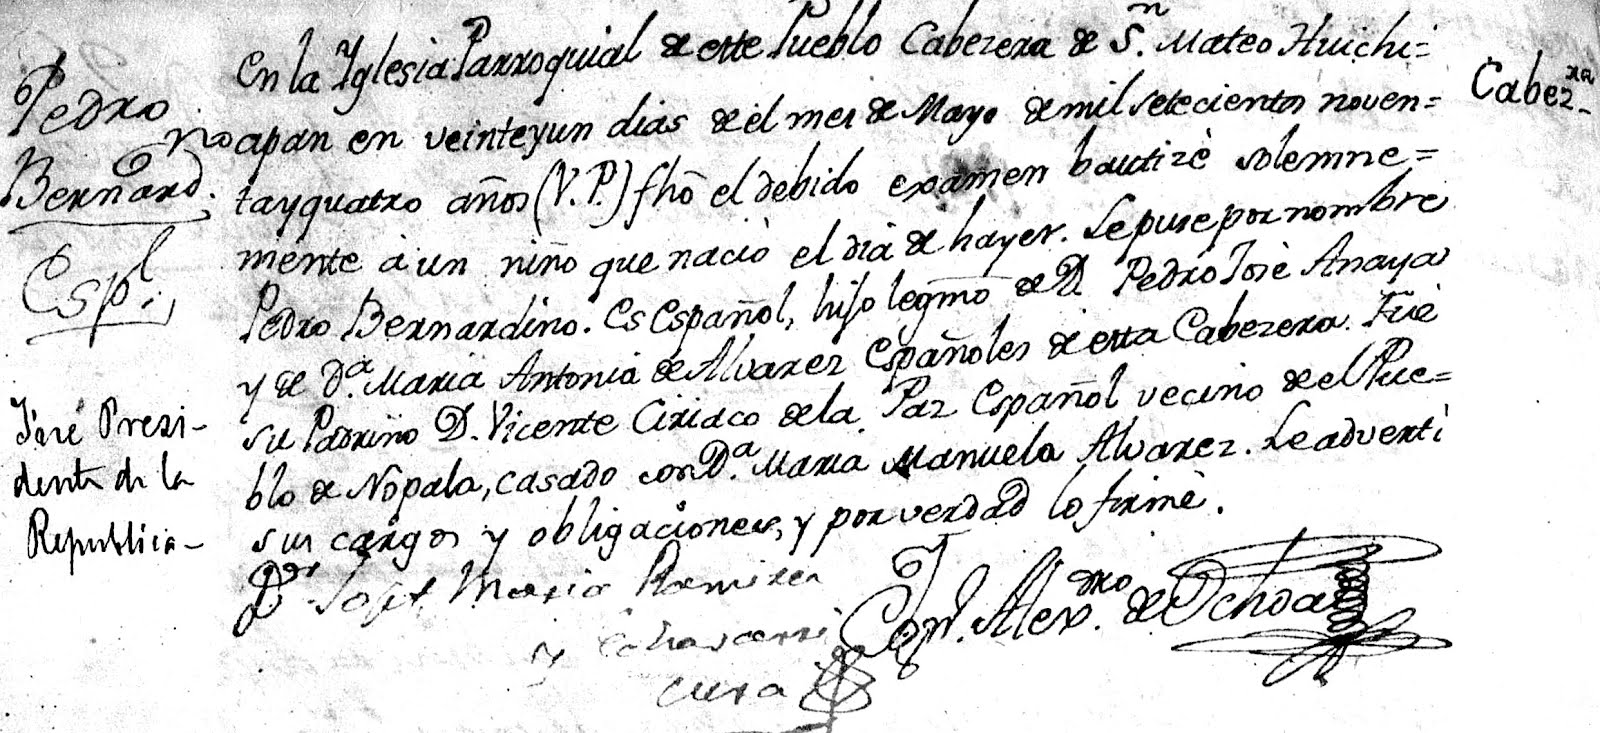 Pedro
Bernard.no
Espl.
Fúé Presi-
dente de la
Republica-
En la Yglesia Parroquial de este Pueblo Cabezera de Sn. Mateo Huichi=
apan en veinteyun dias de el mes de Mayo de mil setecientos noven=
tayquatro años (V.P.) fhô el debido examen bautizè solemne=
mente à un niño que naciò el dia de hayer. Lepuse por nombre
Pedro Bernardino. Es Español, hijo legmõ de D. Pedro José Anaya
y de Da. Maria Antonia de Alvarez Españoles de esta Cabezera. Fué
su Padrino D. Vicente Ciriaco dela Paz Español vecino de el Pue=
blo de Nopala, casado con Da. Maria Manuela Alvarez. Leadverti
sus cargos y obligaciones, y por verdad lo firmè.
Dor Josef Maria Ramirez
y Echavarri
cura
Alexdro. de Ochoa
Cabezra